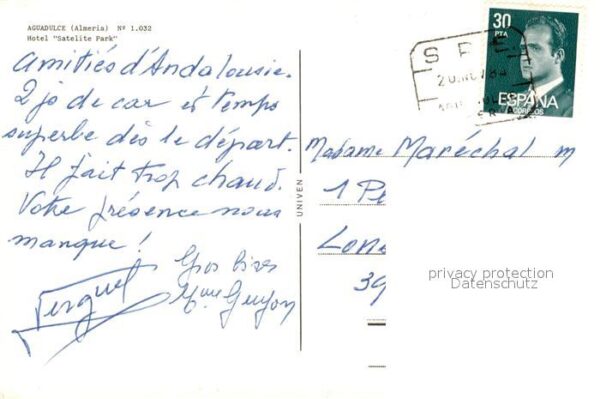 AGUADULCE (Almeria) Nº 1.032
Hotel "Satelite Park"
Amitiés d'Andalousie.
2 js de car et temps
superbe dès le départ.
Il fait trop chaud.
Votre présence nous
manque !
Gros bises
Mme Guyon
UNIVEN
30
PTA
ESPAÑA
CORREOS
Madame Maréchal m
1 P
Lon
39
privacy protection
Datenschutz